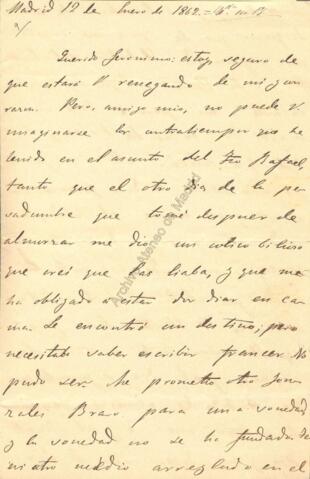 Madrid 12 de Enero de 1862
Querido Jeronimo: estoy seguro de
que estará V renegando de mi
Pero, amigo mio, no puede V.
imaginarse los contratiempos que he
tenido en el asunto del tio Rafael,
tanto que el otro dia de la pe
sadumbre que tomé despues de
almorzar me dio un colico bilioso
que creó que las liaba, y que me
ha obligado a estar dos dias en ca
ma. Le encontré un destino; pero
necesitaba saber escribir frances No
pudo ser. Me prometio otro Gon
zales Bravo para una sociedad
y la sociedad no se ha fundado. De
mi otro medio arreglado en el
Archivo Ateneo de Madrid